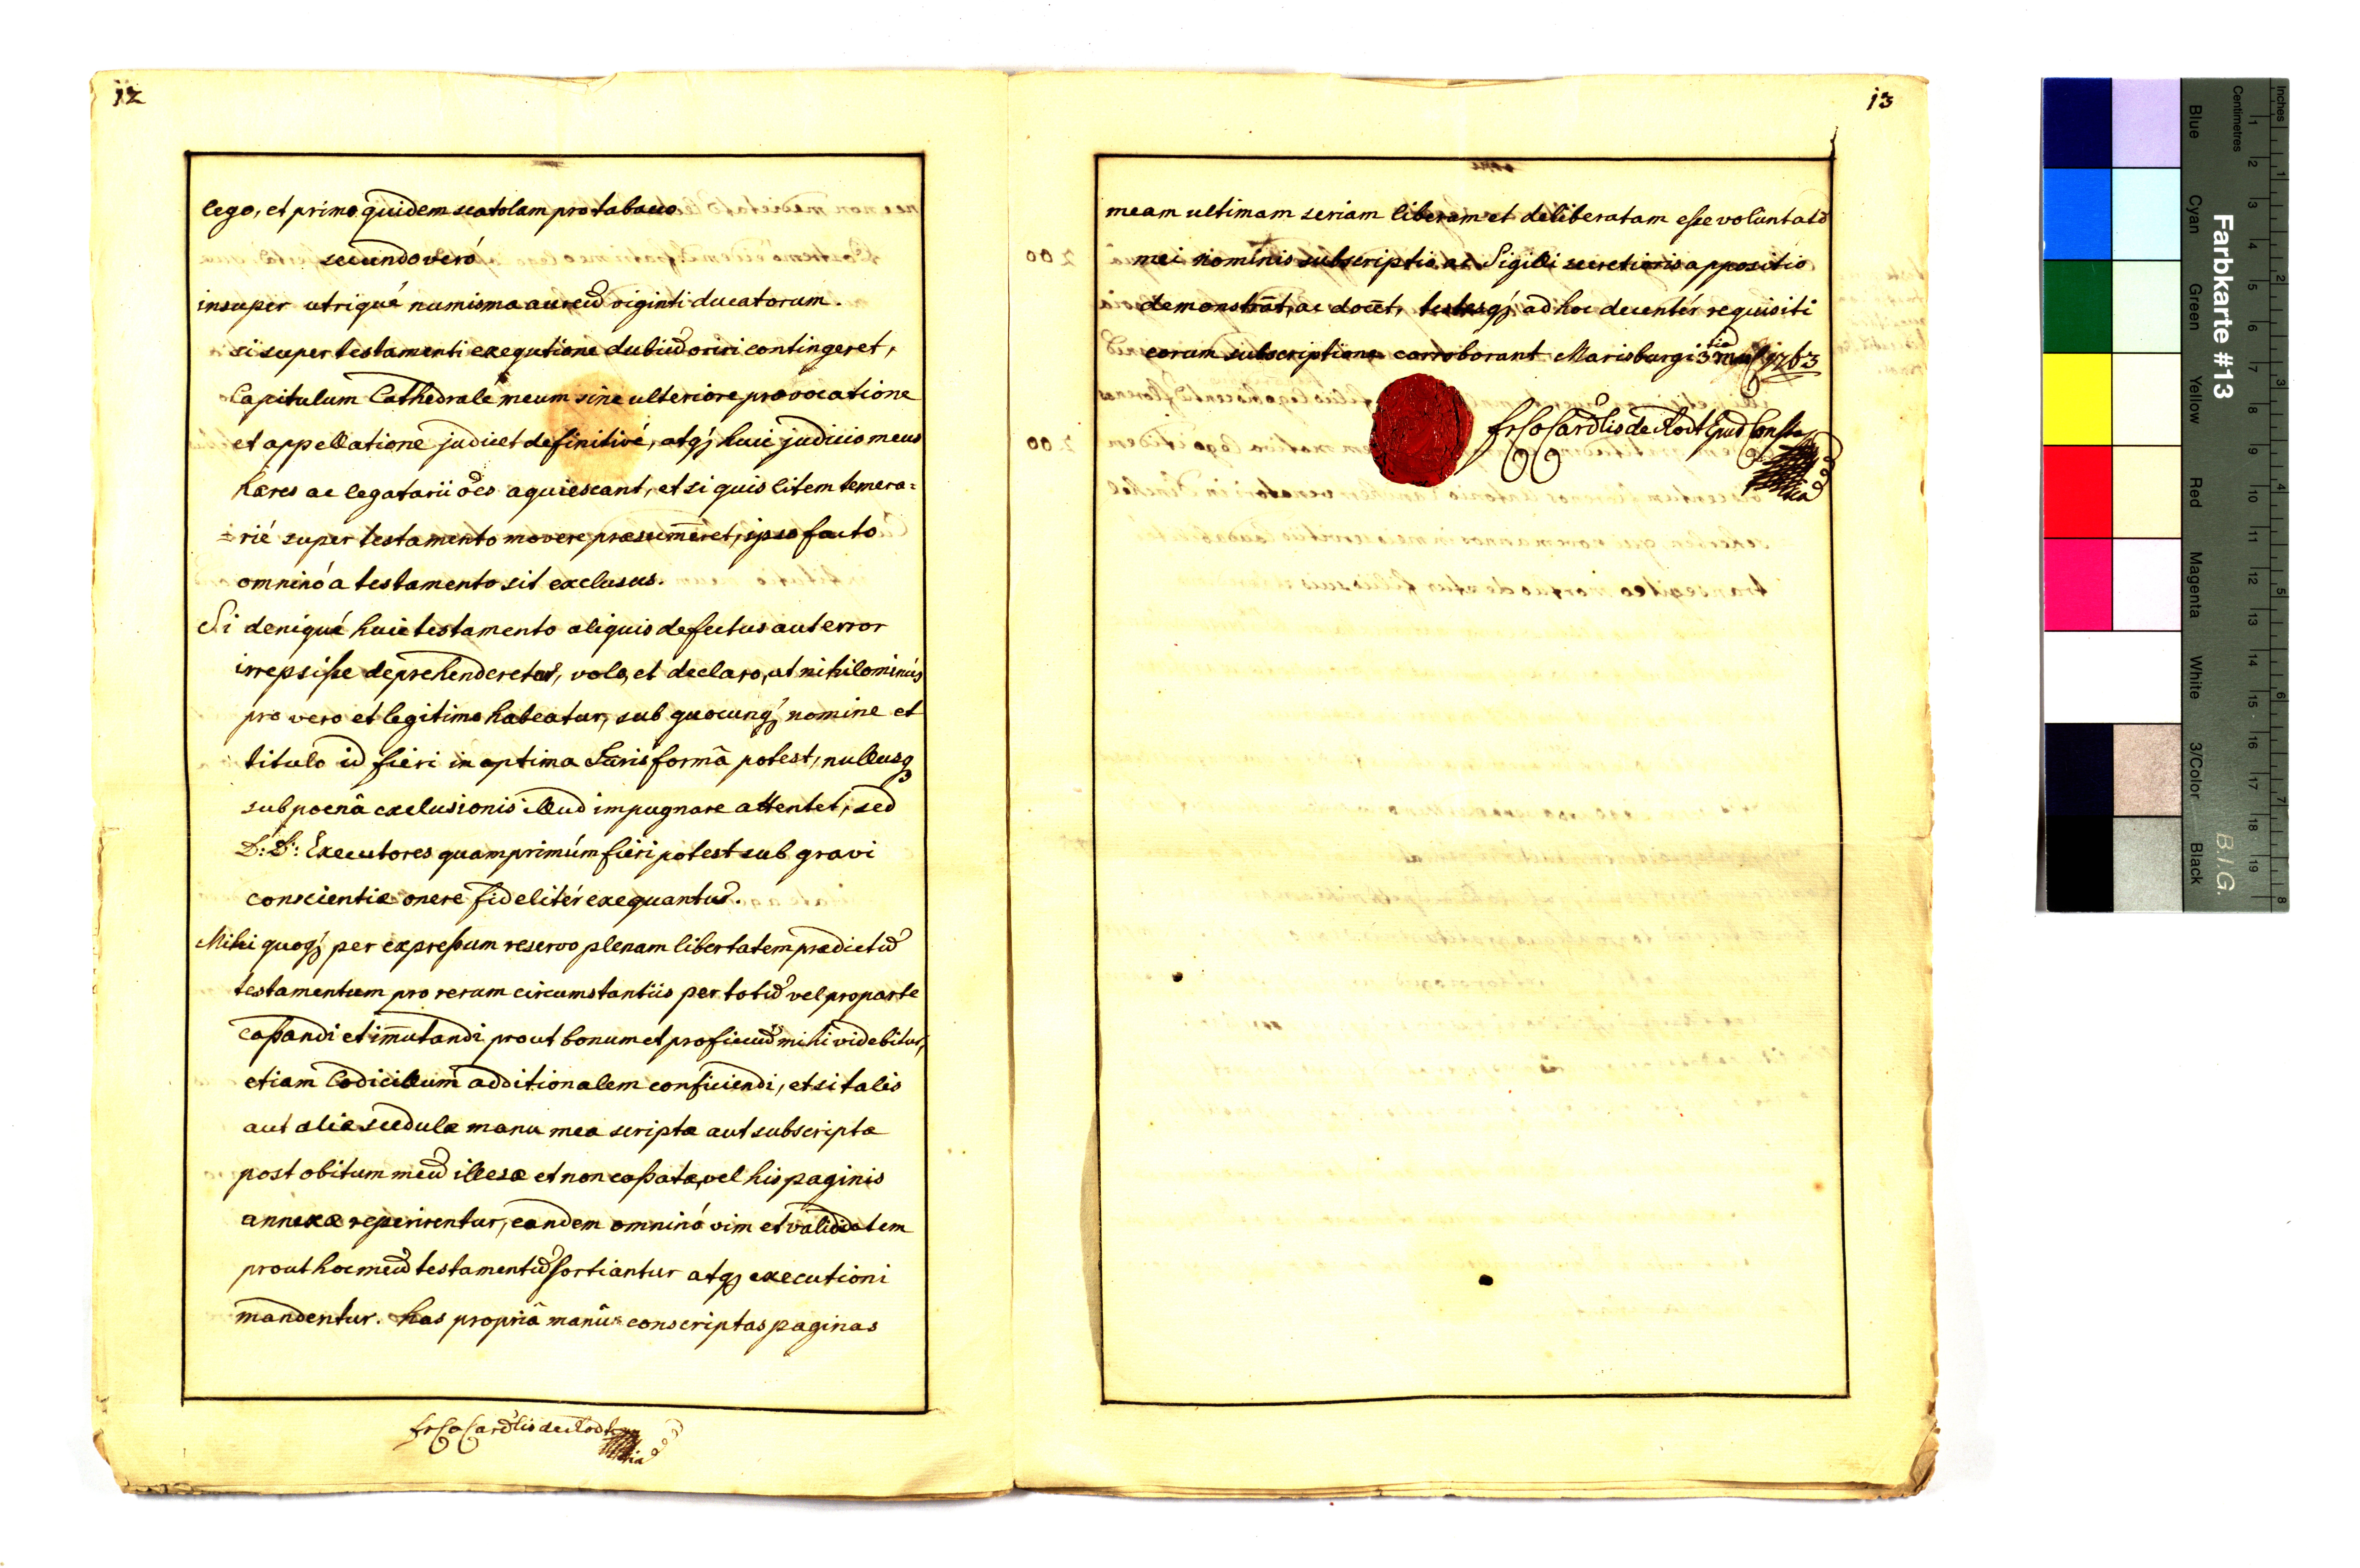 12
lego, et primo quidem scatolam pro tabacco
secundo veró
insuper utriqué numisma aureū viginti ducatorum.
si super testamenti exequtione dubiū oriri contingeret,
Capitulum Cathedralé meum sine ulteriore provocatione
et appellatione judicet definitivé, atq; huic judicio meus
hæres ac legatarii oēs aquiescant, et si quis litem temera=
=rié super testamento movere præsum̄eret, ipso facto
omninó a testamento sit exclusus.
Si deniqué huic testamento aliquis defectus aut error
irrepsiſse deprehenderetur, volo, et declaro, ut nihilominús
pro vero et legitimo habeatur, sub quocunq; nomine et
titulo id fieri in optima Juris formâ potest, nullusq;
sub poenâ exclusionis illud impugnare attentet, sed
D: D: Executores quamprimúm fieri potest sub gravi
conscientiæ onere fidelitér exequantur.
Mihi quoq; per expreſsum reservo plenam libertatem prædictū
testamentum pro rerum circumstantiis per totū vel pro parte
caſsandi et im̄utandi prout bonum et proficuū mihi videbitur,
etiam Codicillum additionalem conficiendi, et si talis
aut aliæ scedulæ manu mea scriptæ aut subscriptæ
post obitum meū illesæ et non caſsatæ, vel his paginis
annexæ reperirentur, eandem omninó vim et validitatem
prout hoc meū testamentū sortiantur atq; executioni
mandentur. has propriâ manû conscriptas paginas
fr C Cardlis de Rodt
13
meam ultimam seriam liberam et deliberatam eſse voluntatē
mei nominis subscriptio ac Sigilli secretioris appositio
demonstrāt, ac docēt, testesq; ad hoc decentér requisiti
eorum subscriptione corroborant Marisburgi 3tia Maij 1763
fr C Cardlis de Rodt Epūs Const
200
200
Farbkarte #13
B.I.G.
Blue
Cyan
Green
Yellow
Red
Magenta
White
3/Color
Black
Centimetres
Inches
1 2 3 4 5 6 7 8 9 10 11 12 13 14 15 16 17 18 19
1 2 3 4 5 6 7 8